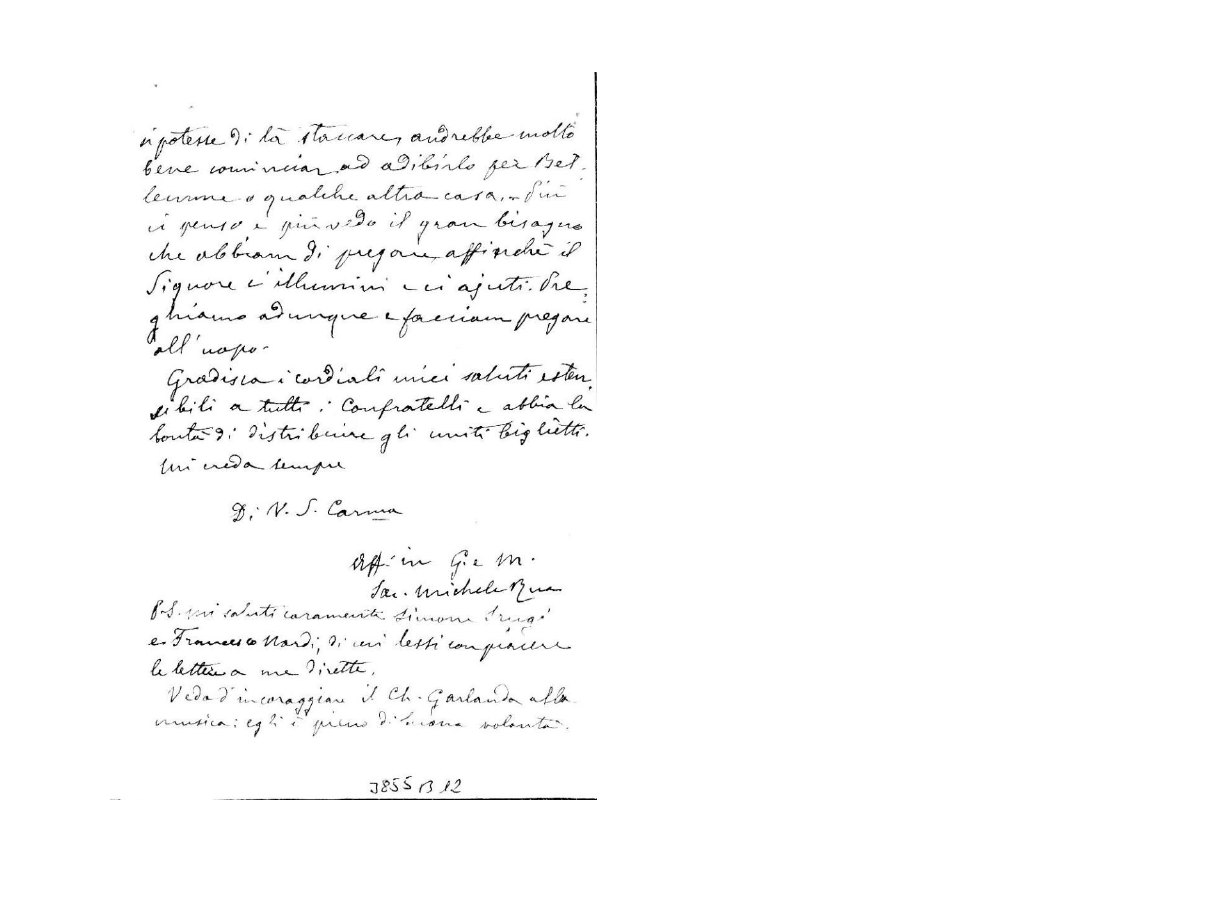 si potesse di là staccare, andrebbe molto
bene cominciar ad adibirlo per Bet-
lemme o qualche altra casa. - Più
ci penso e più vedo il gran bisogno
che abbiam di pregare affinchè il
Signore c'illumini e ci ajuti. Pre-
ghiamo adunque e facciam pregare
all'uopo.
Gradisca i cordiali miei saluti esten-
sibili a tutti i Confratelli e abbia la
bontà di distribuire gli uniti biglietti.
Mi creda sempre
Di V. S. Carma
Aff. in G. e M.
Sac. Michele Rua
P.S. Mi saluti caramente Simone Srugi
e Francesco Nardi, di cui lessi con piacere
le lettere a me dirette.
Veda d'incoraggiare il Ch. Garlanda alla
musica: egli è pieno di buona volontà.
3855 B 12